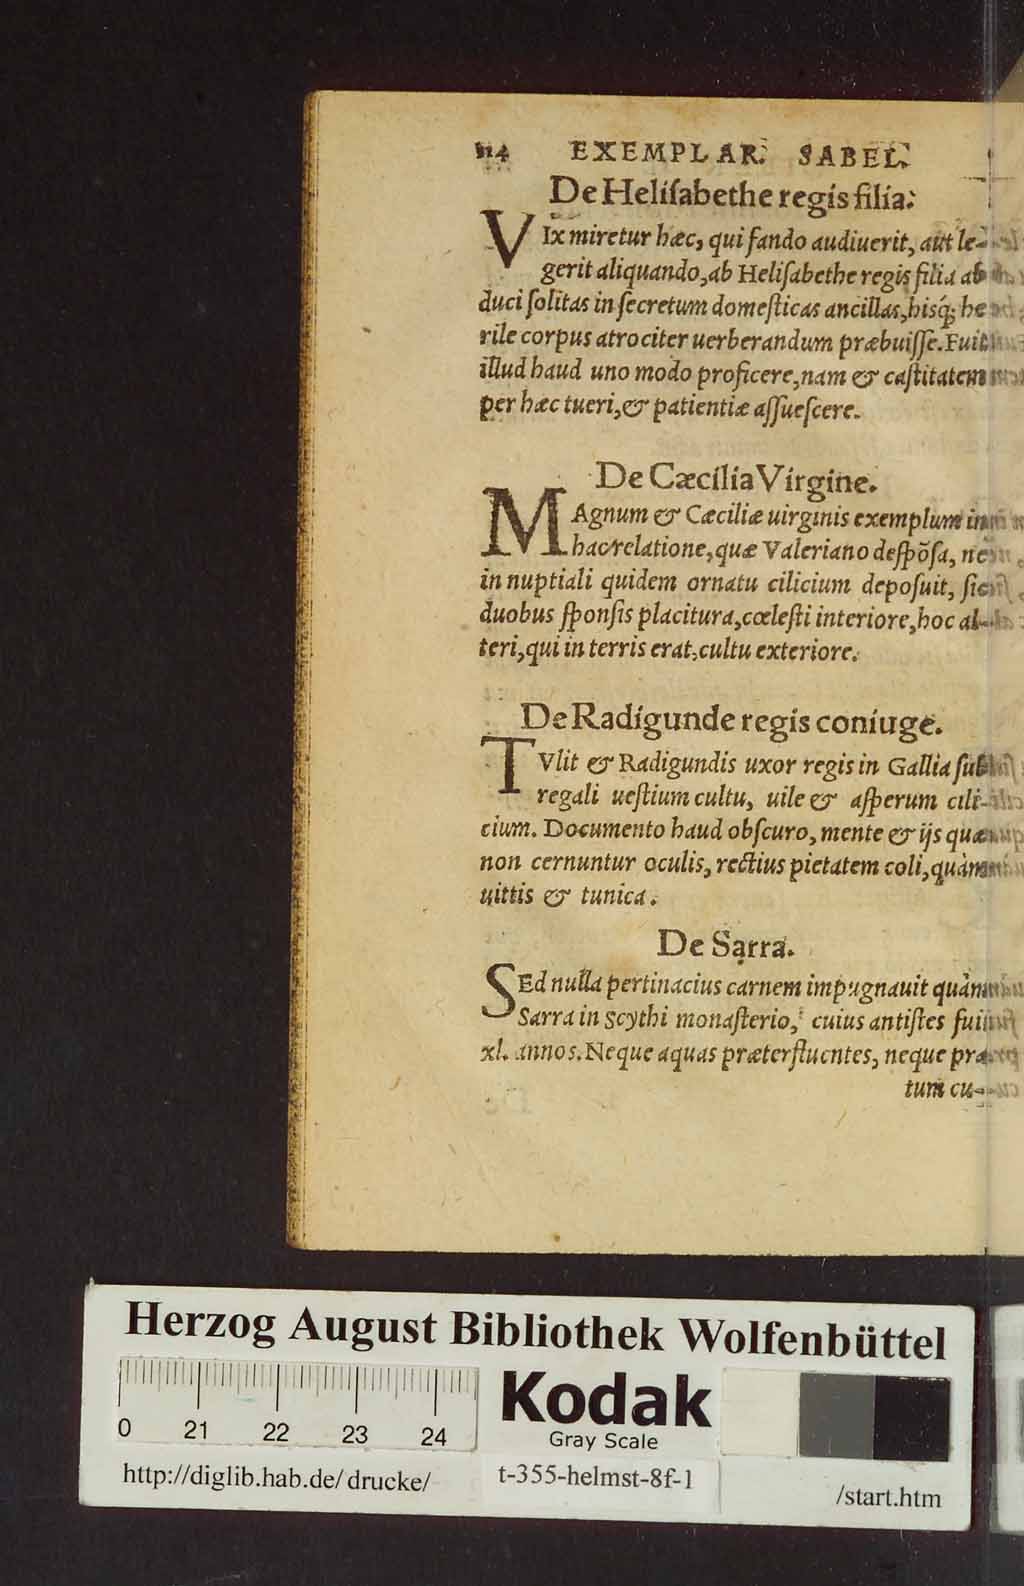 114 EXEMPLAR. SABEL.
De Heliſabethe regis filia.
VIx miretur hæc, qui fando audiuerit, aut le-
gerit aliquando, ab Heliſabethe regis filia ab
duci ſolitas in ſecretum domeſticas ancillas, hisq́; he
rile corpus atrociter uerberandum præbuiſſe. Fuit
illud haud uno modo proficere, nam & caſtitatem
per hæc tueri, & patientiæ aſſueſcere.
De Cæcilia Virgine.
MAgnum & Cæciliæ uirginis exemplum in
hac relatione, quæ Valeriano deſpõſa, ne
in nuptiali quidem ornatu cilicium depoſuit, ſic
duobus ſponſis placitura, cœleſti interiore, hoc al-
teri, qui in terris erat, cultu exteriore.
De Radigunde regis coniuge.
TVlit & Radigundis uxor regis in Gallia ſub
regali ueſtium cultu, uile & aſperum cili-
cium. Documento haud obſcuro, mente & ijs quæ
non cernuntur oculis, rectius pietatem coli, quàm
uittis & tunica.
De Sarra.
SEd nulla pertinacius carnem impugnauit quàm
Sarra in Scythi monaſterio, cuius antiſtes fuit
xl. annos. Neque aquas præterfluentes, neque pra
tum cu-
Herzog August Bibliothek Wolfenbüttel
0 21 22 23 24
Kodak
Gray Scale
http://diglib.hab.de/drucke/ t-355-helmst-8f-1 /start.htm